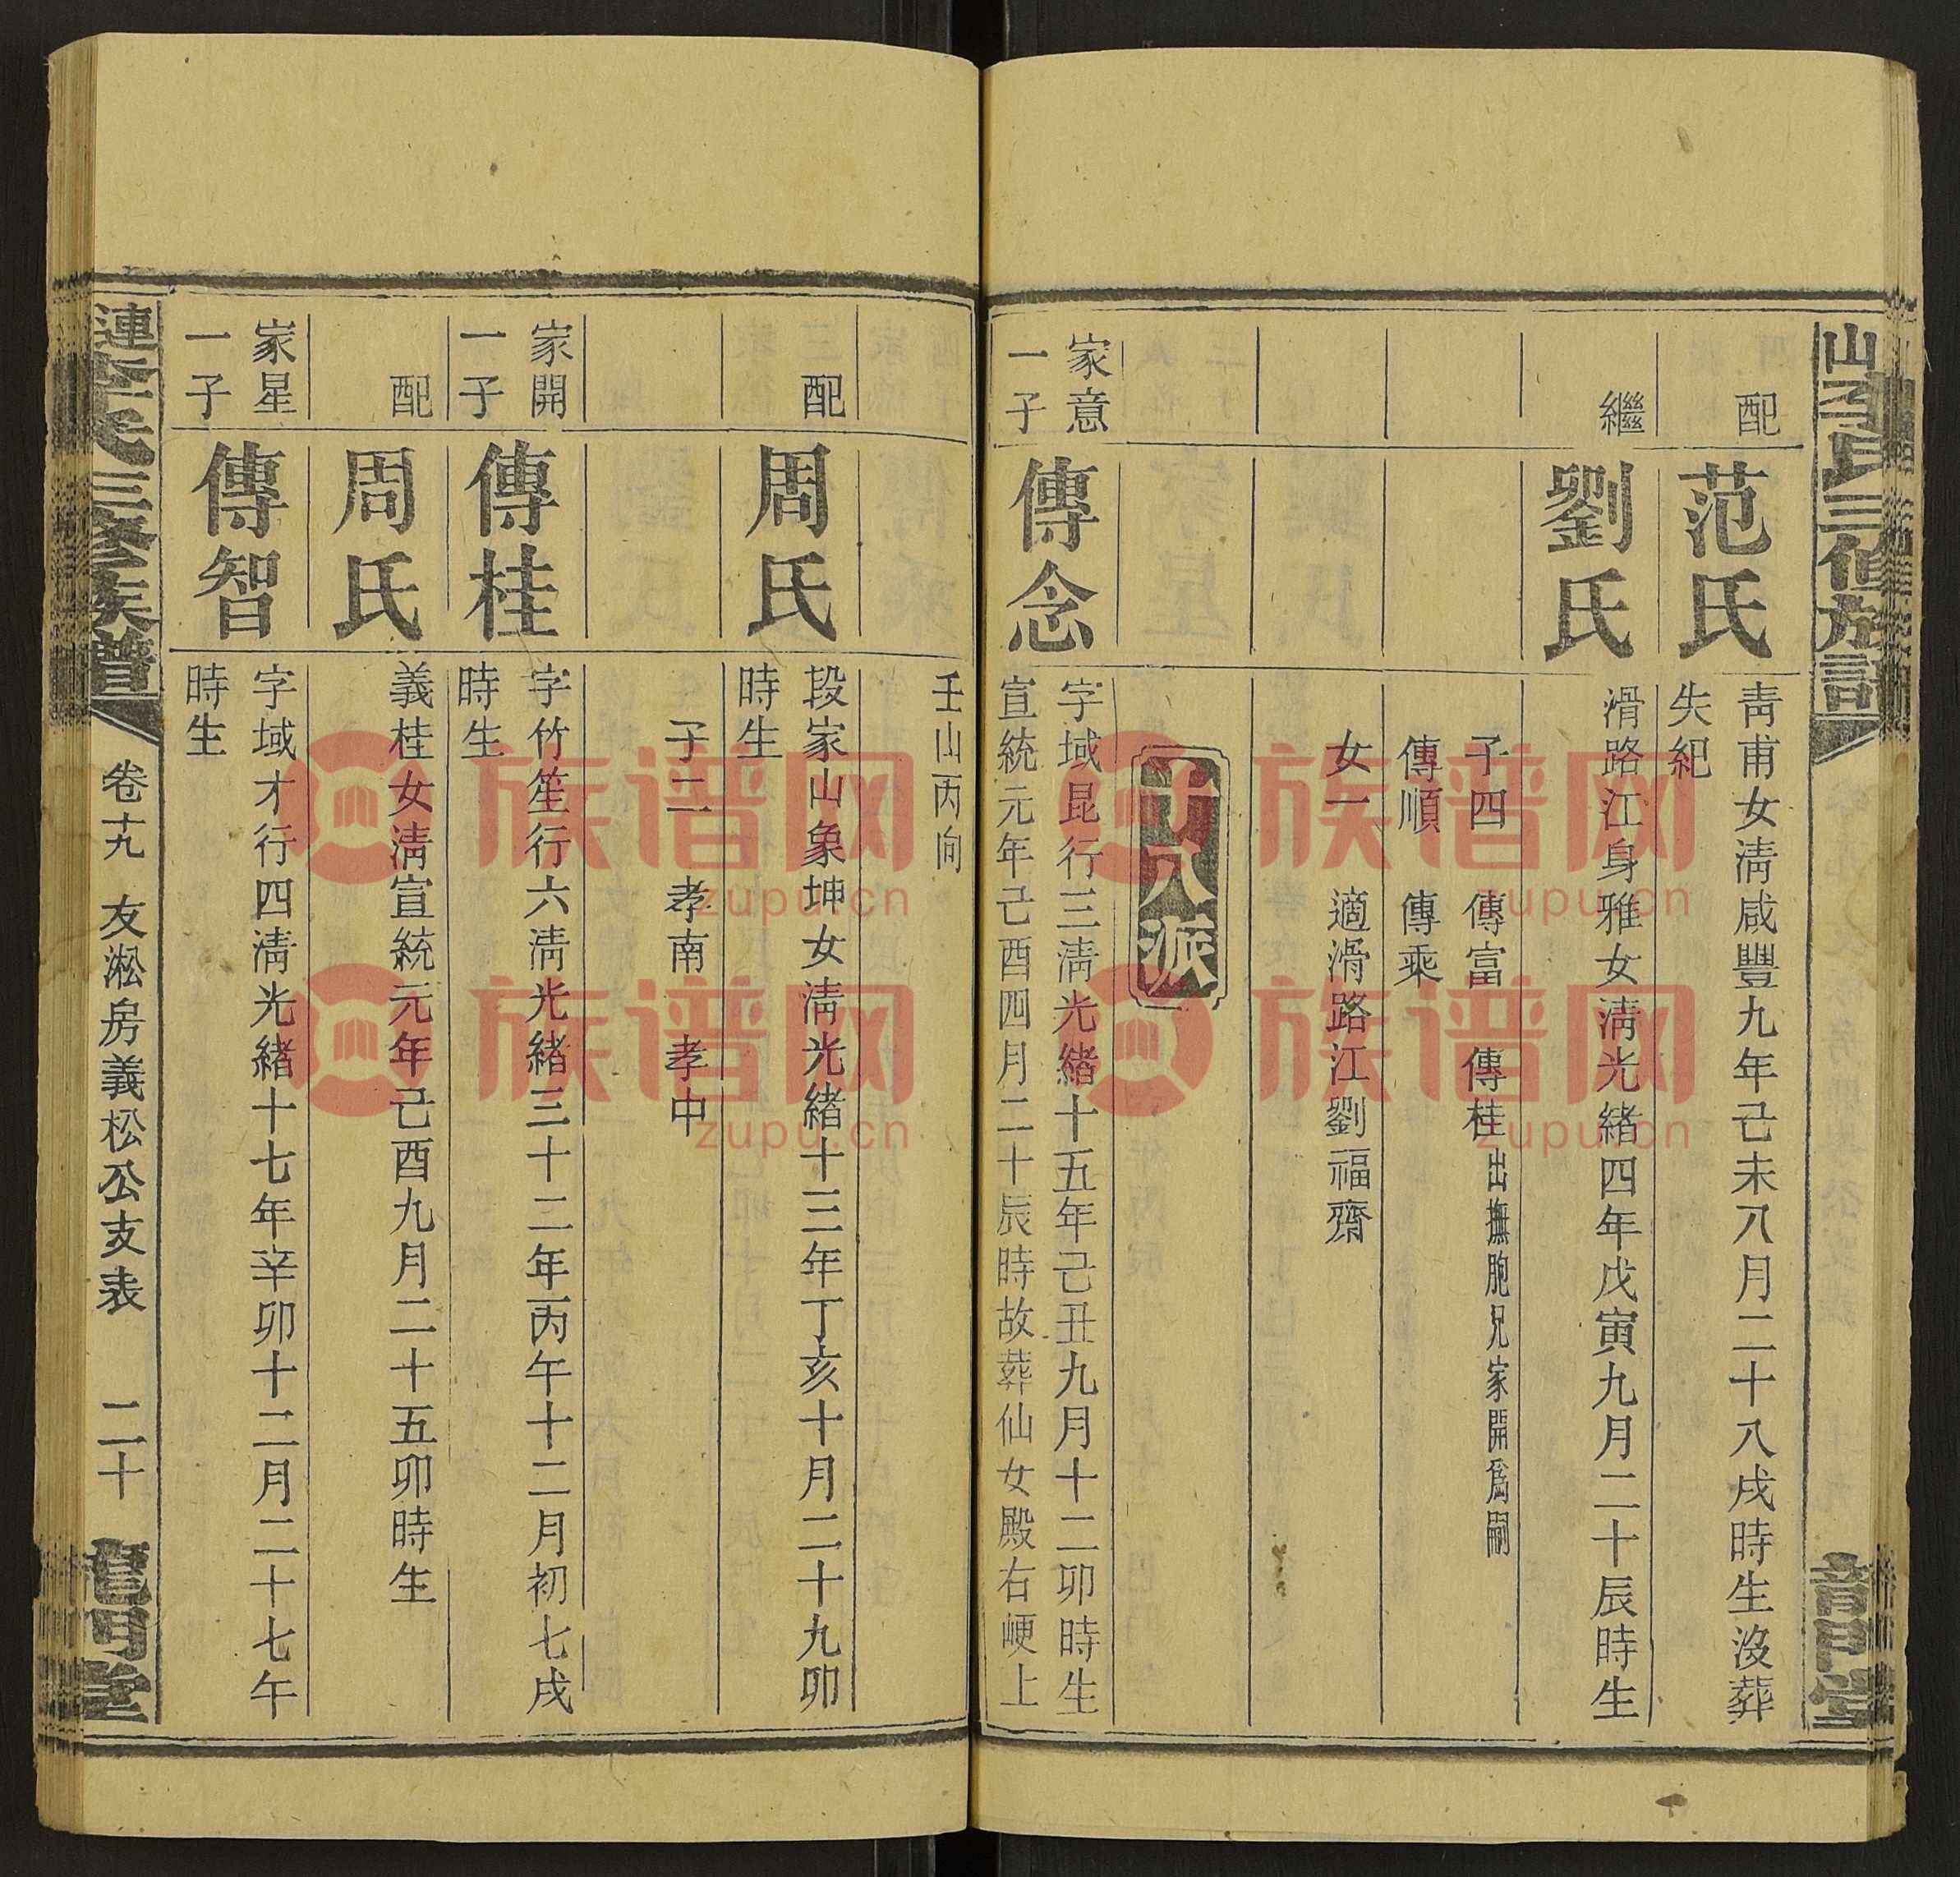 配
范氏
青甫女清咸豐九年己未八月二十八戌時生沒葬
失紀
繼
劉氏
滑路江身雅女清光緒四年戊寅九月二十辰時生
子四 傳富 傳桂出撫胞兄家開爲嗣
傳順 傳乘
女一 適滑路江劉福齋
十八派
家意
一子
傳念
字域昆行三清光緒十五年己丑九月十二卯時生
宣統元年己酉四月二十辰時故葬仙女殿右崾上
壬山丙向
配
周氏
段家山象坤女清光緒十三年丁亥十月二十九卯
時生
子二 孝南 孝中
家開
一子
傳桂
字竹笙行六清光緒三十二年丙午十二月初七戌
時生
配
周氏
義桂女清宣統元年己酉九月二十五卯時生
家星
一子
傳智
字域才行四清光緒十七年辛卯十二月二十七午
時生
連李氏三修族譜
卷十九 友淞房義松公支表 二十
龍門堂
族谱网
zupu.cn
族谱网
zupu.cn
族谱网
zupu.cn
族谱网
zupu.cn